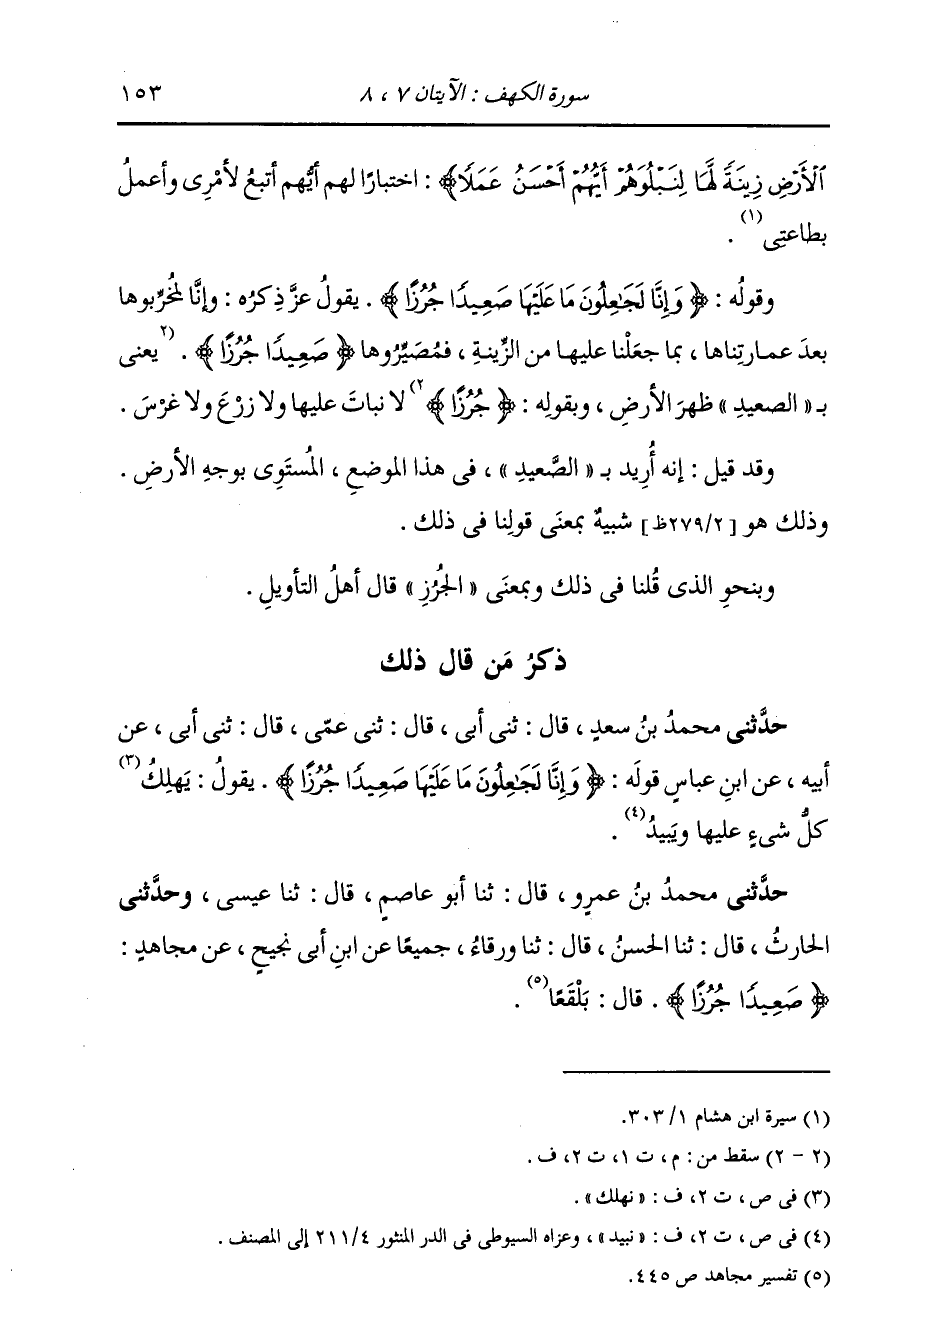 سورة الكهف : الآيتان ٧ ، ٨ ١٥٣
ٱلْأَرْضِ زِينَةً لَّهَا لِنَبْلُوَهُمْ أَيُّهُمْ أَحْسَنُ عَمَلًا﴾ : اختبارًا لهم أيُّهم أتبعُ لأمْرِى وأعملُ
بطاعتِى(١) .
وقولُه : ﴿ وَإِنَّا لَجَٰعِلُونَ مَا عَلَيْهَا صَعِيدًا جُرُزًا ﴾ . يقولُ عزَّ ذِكرُه : وإنَّا لمُخرِّبوها
بعدَ عمارتِناها ، بما جعَلْنا عليها من الزِّينةِ ، فمُصَيِّرُوها ﴿ صَعِيدًا جُرُزًا ﴾ . (٢يعنى
بـ « الصعيدِ » ظهرَ الأرضِ ، وبقولِه : ﴿ جُرُزًا ﴾٢) لا نباتَ عليها ولا زرْعَ ولا غرْسَ .
وقد قيل : إنه أُريد بـ « الصَّعيدِ » ، فى هذا الموضعِ ، المُستَوِى بوجهِ الأرضِ .
وذلك هو [٢٧٩/٢ظ] شبيهٌ بمعنَى قولِنا فى ذلك .
وبنحوِ الذى قُلنا فى ذلك وبمعنَى « الجُرُزِ » قال أهلُ التأويلِ .
ذكرُ مَن قال ذلك
حدَّثنى محمدُ بنُ سعدٍ ، قال : ثنى أبى ، قال : ثنى عمّى ، قال : ثنى أبى ، عن
أبيه ، عن ابنِ عباسٍ قولَه : ﴿ وَإِنَّا لَجَٰعِلُونَ مَا عَلَيْهَا صَعِيدًا جُرُزًا ﴾ . يقولُ : يَهلِكُ(٣)
كلُّ شىءٍ عليها ويَبيدُ(٤) .
حدَّثنى محمدُ بنُ عمرٍو ، قال : ثنا أبو عاصمٍ ، قال : ثنا عيسى ، وحدَّثنى
الحارثُ ، قال : ثنا الحسنُ ، قال : ثنا ورقاءُ ، جميعًا عن ابنِ أبى نجيحٍ ، عن مجاهدٍ :
﴿ صَعِيدًا جُرُزًا ﴾ . قال : بَلْقَعًا(٥) .
(١) سيرة ابن هشام ١/ ٣٠٣.
(٢ - ٢) سقط من : م، ت ١، ت ٢، ف .
(٣) فى ص، ت ٢، ف : « نهلك » .
(٤) فى ص، ت ٢، ف : « نبيد » ، وعزاه السيوطى فى الدر المنثور ٢١١/٤ إلى المصنف .
(٥) تفسير مجاهد ص ٤٤٥.